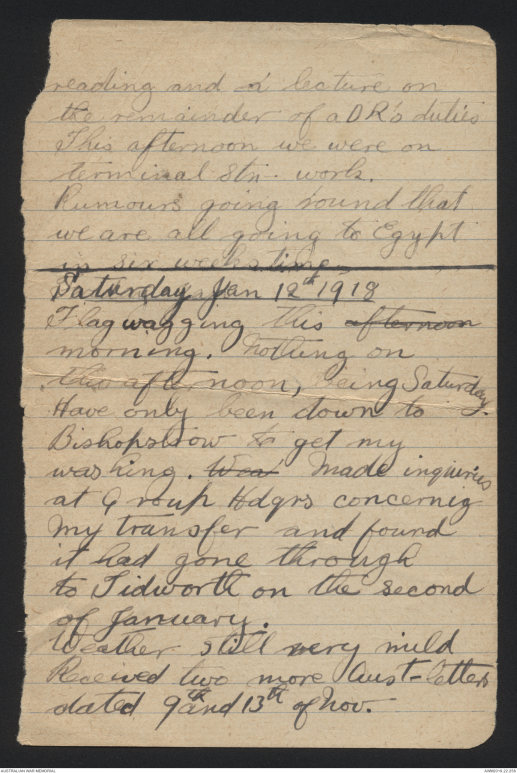 reading and a lecture on
the remainder of a DR's duties
This afternoon we were on
terminal Stn. work.
Rumours going round that
we are all going to Egypt
in six weeks time.
Saturday Jan 12th 1918
Flag wagging this afternoon
morning. Nothing on
this afternoon, being Saturday.
Have only been down to
Bishopstrow to get my
washing. Wea Made inquiries
at Group Hdqrs concernig
my transfer and found
it had gone through
to Tidworth on the second
of January.
Weather still very mild
Received two more Aust-letters
dated 9th and 13th of Nov.
AUSTRALIAN WAR MEMORIAL